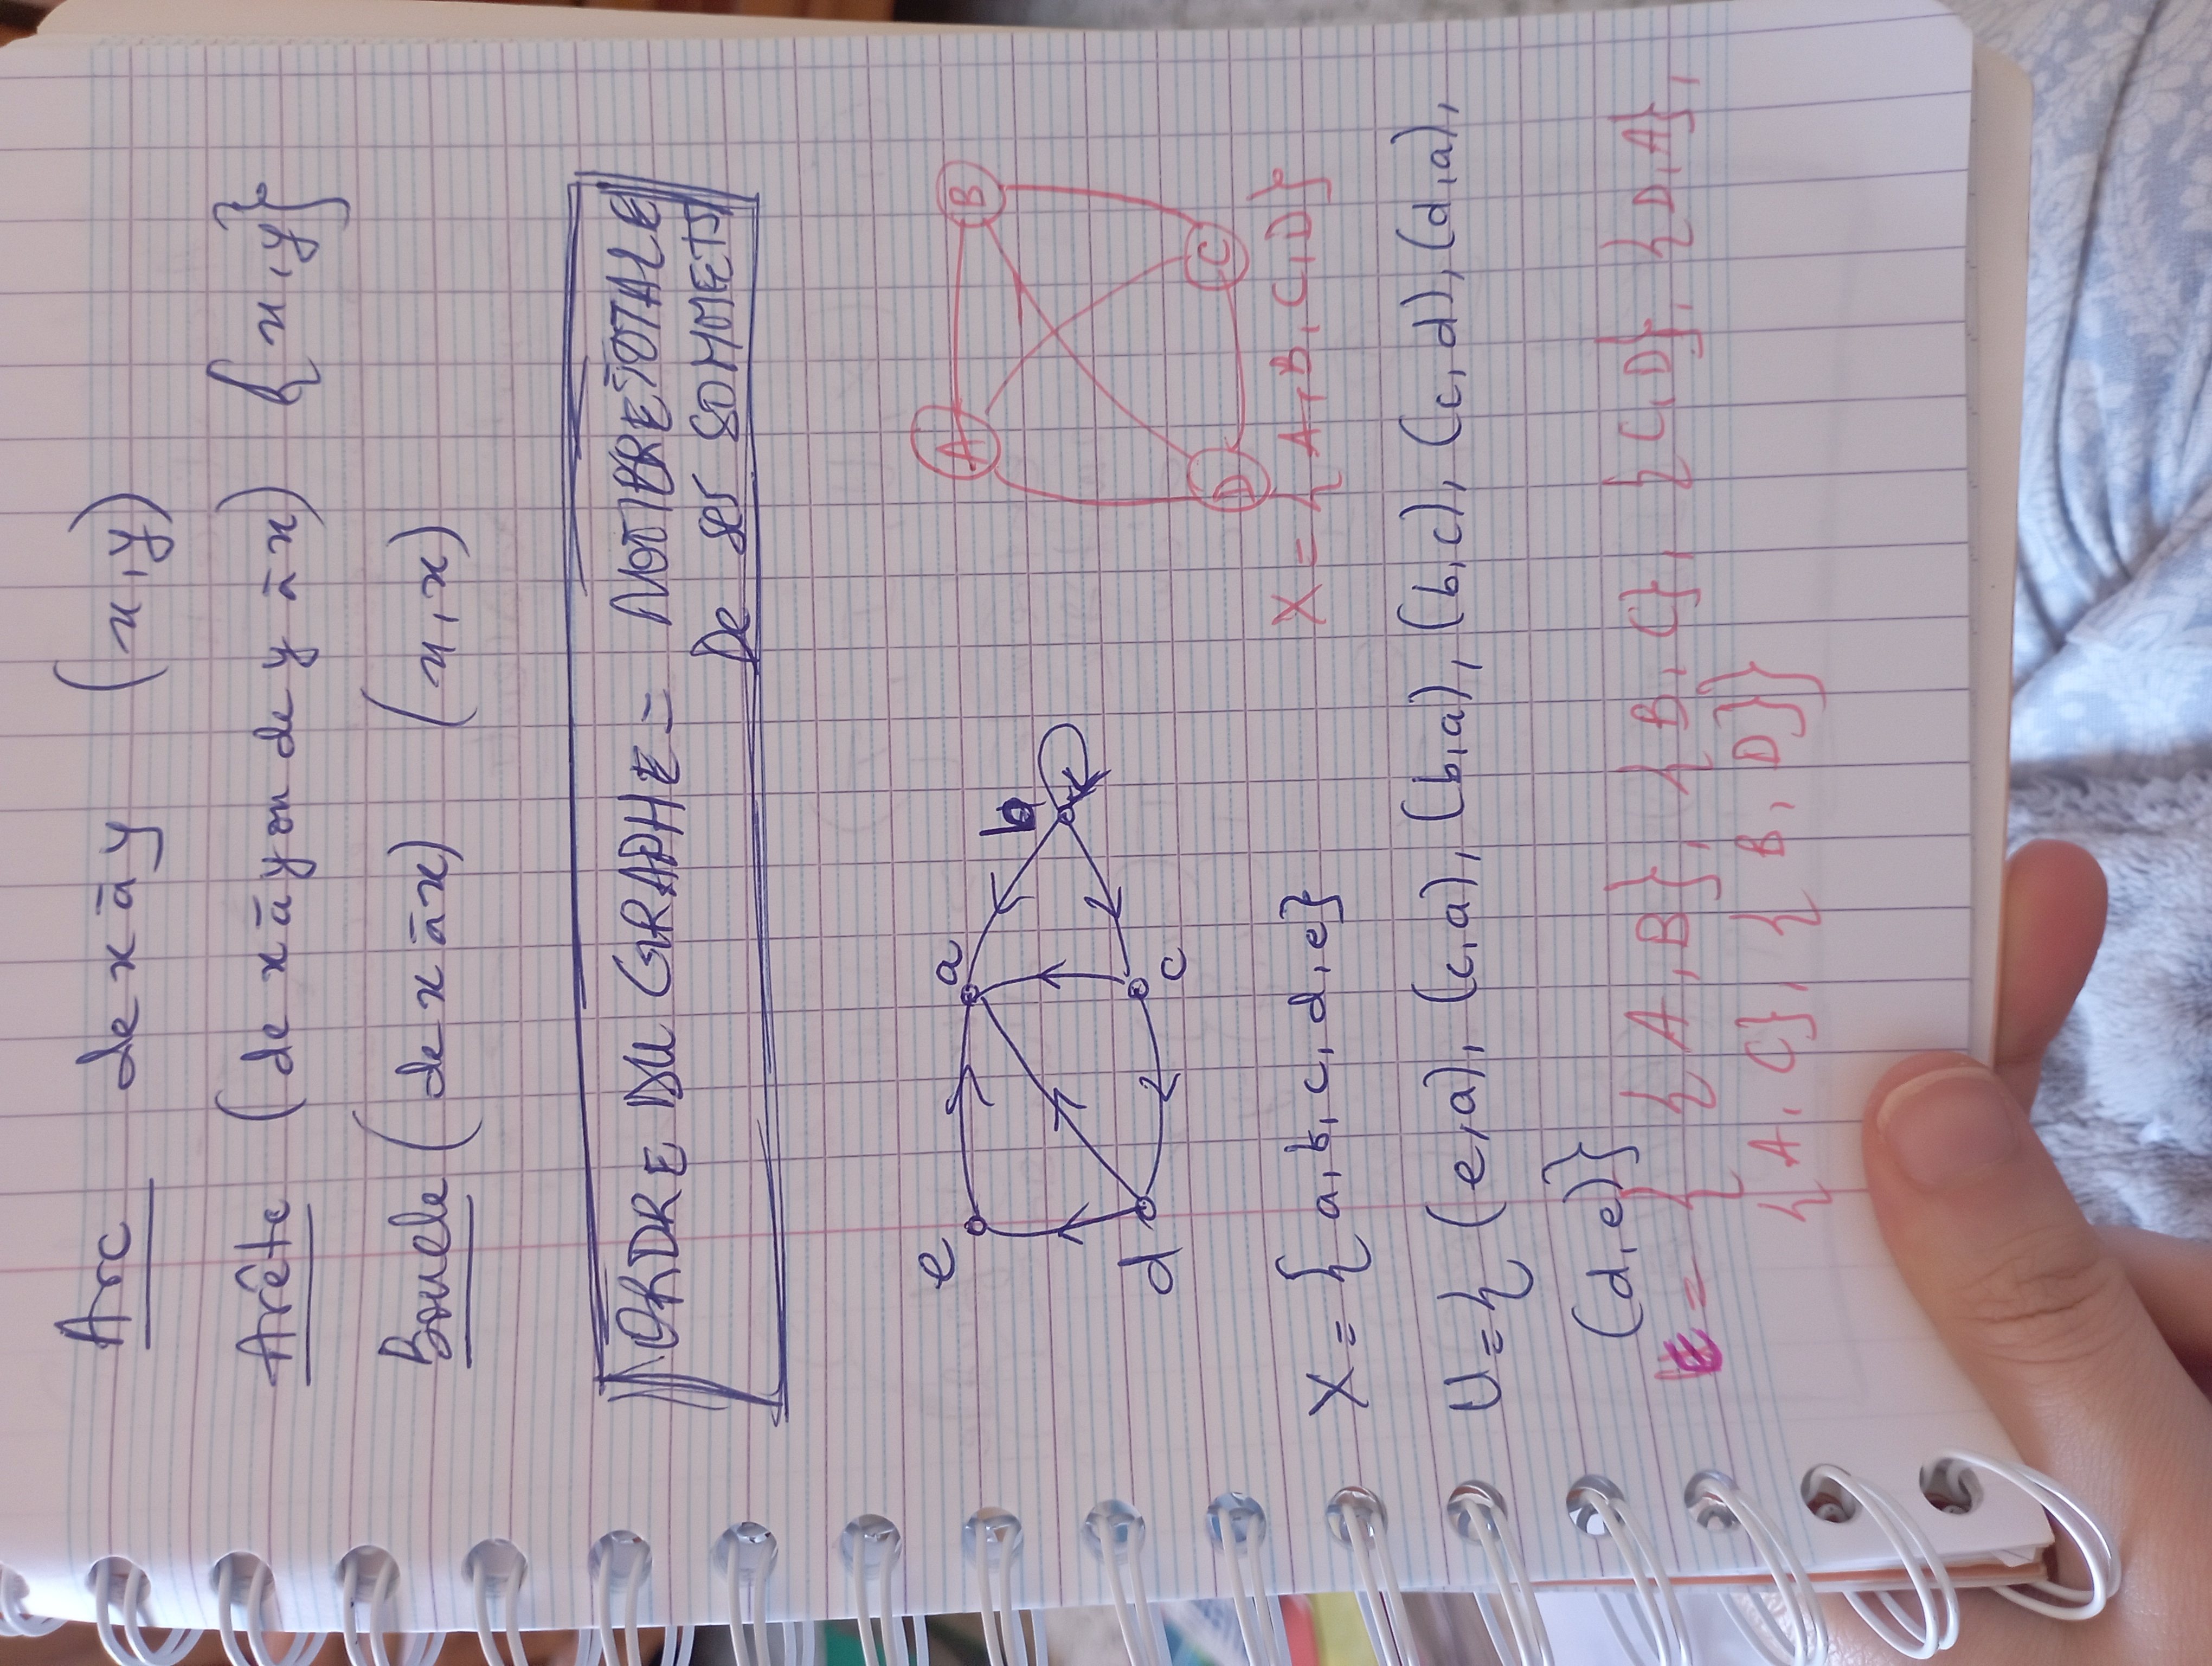 Arc de x à y (x, y)
Arête (de x à y ou de y à x) {x, y}
Boucle (de x à x) (x, x)
ORDRE DU GRAPHE = NOMBRE TOTALE
De ses SOMMETS
e a
b
d c
A B
D C
X = {a, b, c, d, e}
X = {A, B, C, D}
U = {(e, a), (c, a), (b, a), (b, c), (c, d), (d, a),
(d, e)}
E = {{A, B}, {B, C}, {C, D}, {D, A},
{A, C}, {B, D}}